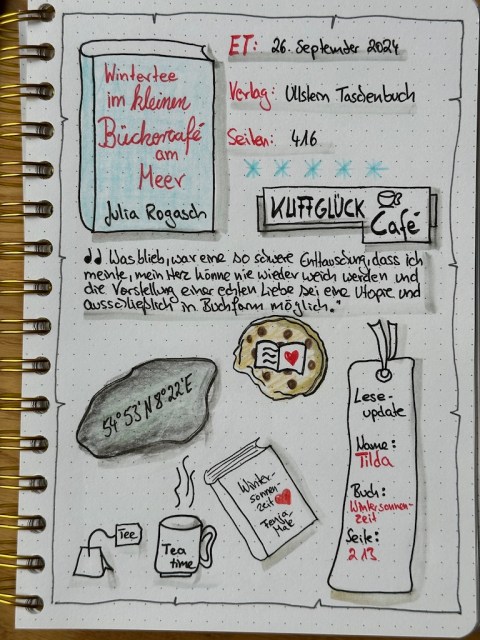 Wintertee
im kleinen
Büchercafé
am
Meer
Julia Rogasch
ET: 26. September 2024
Verlag: Ullstein Taschenbuch
Seiten: 416
KLIFFGLÜCK
Café
„Was blieb, war eine so schwere Enttäuschung, dass ich
meinte, mein Herz könne nie wieder weich werden und
die Vorstellung einer echten Liebe sei eine Utopie und
ausschließlich in Buchform möglich."
54°53'N 8°22'E
Lese-
update
Name:
Tilda
Buch:
Wintersonnen-
zeit
Seite:
213
Winter-
sonnen-
zeit
Tee
Tea
time